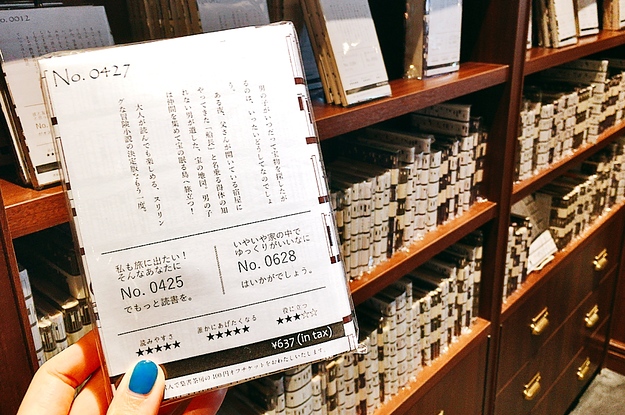 No. 0012
No. 0427
男の子がいつだって宝物を探したが
るのは、いったいどうしてなのでしょ
う。
ある夜、父さんが開いている宿屋に
やってきた「船長」と名乗る得体の知
れない男が遺した、宝の地図。男の子
は仲間を集めて宝の眠る島へ旅立つ!
大人が読んでも楽しめる、スリリン
グな冒険小説の決定版をもう一度。
私も旅に出たい!
そんなあなたに
No. 0425
でもっと読書を。
いやいや家の中で
ゆっくりがいいなに
No. 0628
はいかがでしょう。
読みやすさ
★★★★★
誰かにあげたくなる
★★★★★
役に立つ
★★★☆☆
¥637 (in tax)
んで梟書茶房の100円オフチケットをおわたしいたします